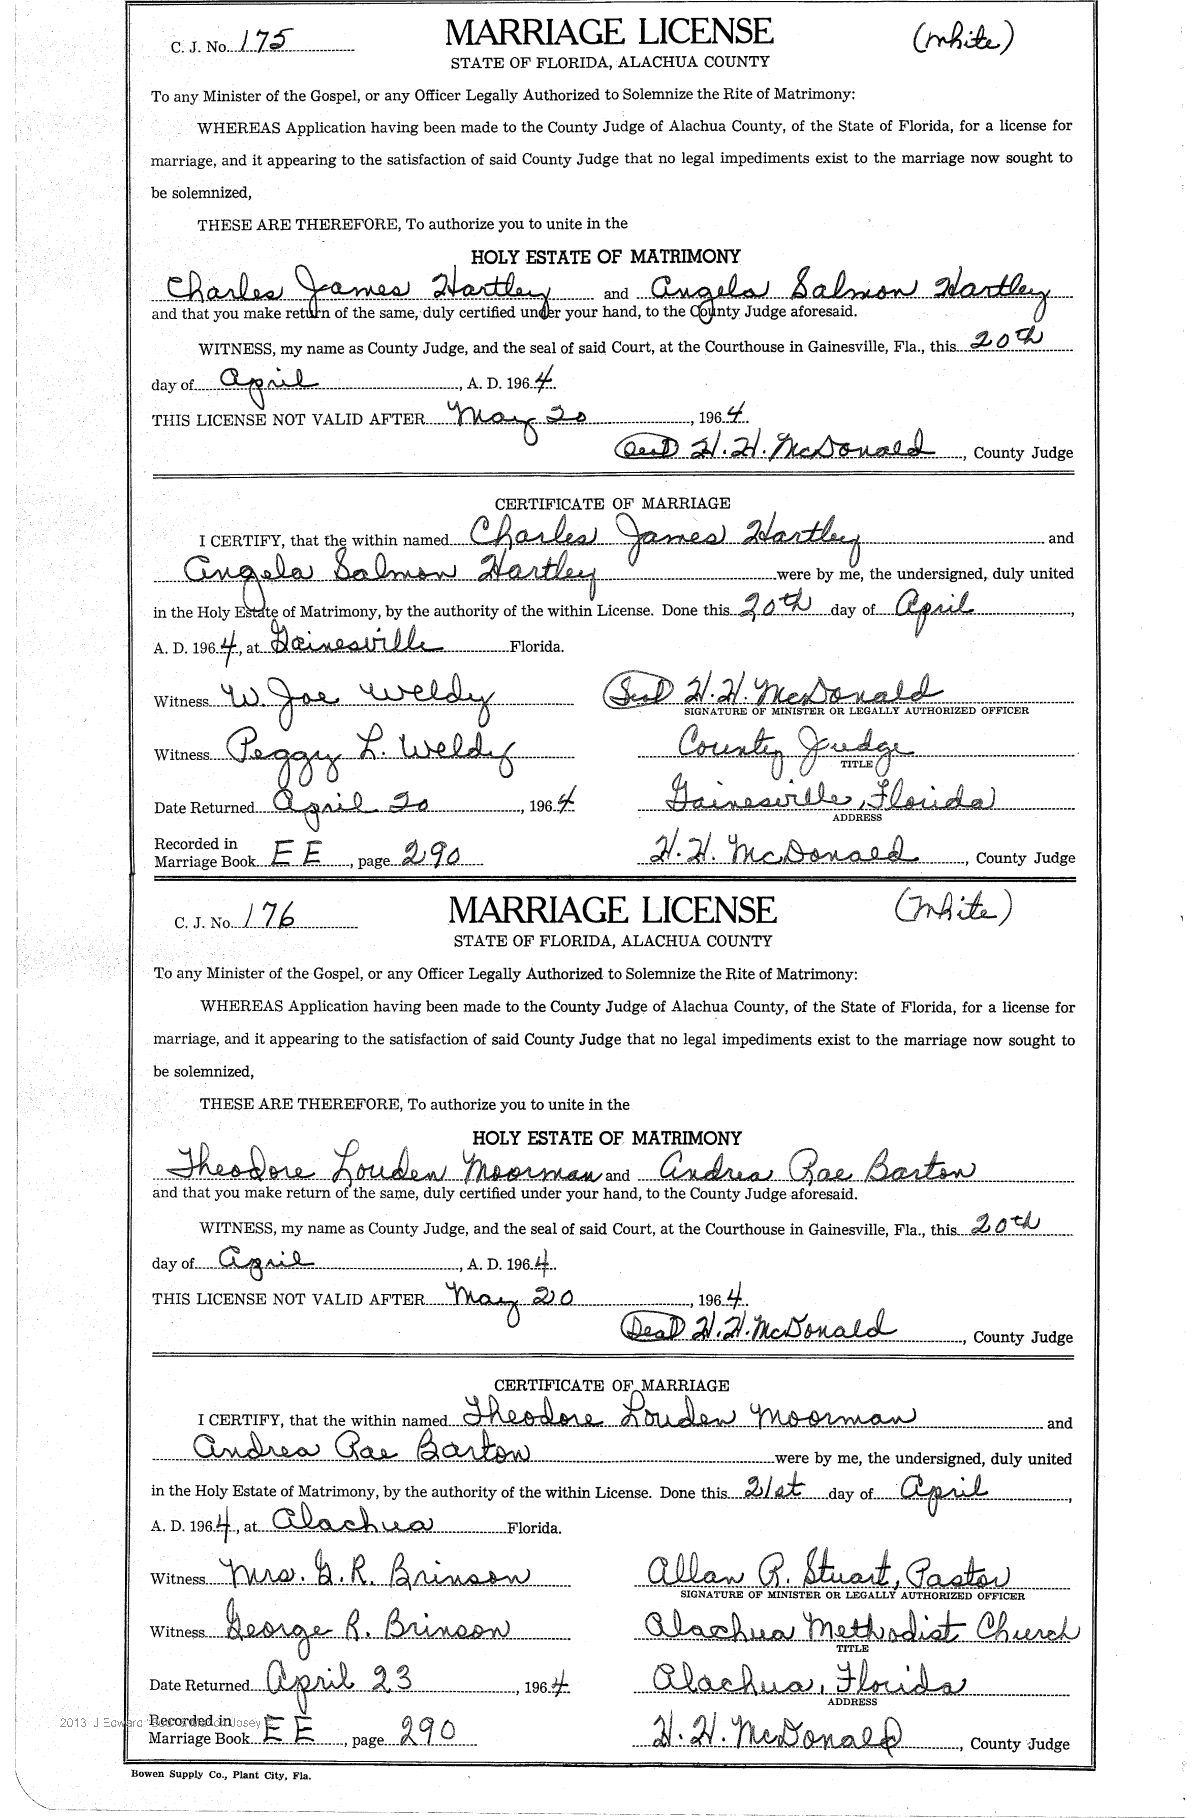 C. J. No. 175
MARRIAGE LICENSE
(White)
STATE OF FLORIDA, ALACHUA COUNTY
To any Minister of the Gospel, or any Officer Legally Authorized to Solemnize the Rite of Matrimony:
WHEREAS Application having been made to the County Judge of Alachua County, of the State of Florida, for a license for
marriage, and it appearing to the satisfaction of said County Judge that no legal impediments exist to the marriage now sought to
be solemnized,
THESE ARE THEREFORE, To authorize you to unite in the
HOLY ESTATE OF MATRIMONY
Charles James Hartley and Angela Salmon Hartley
and that you make return of the same, duly certified under your hand, to the County Judge aforesaid.
WITNESS, my name as County Judge, and the seal of said Court, at the Courthouse in Gainesville, Fla., this 20th
day of April, A. D. 1964.
THIS LICENSE NOT VALID AFTER May 20, 1964
(Seal) H. H. McDonald, County Judge
CERTIFICATE OF MARRIAGE
I CERTIFY, that the within named Charles James Hartley and
Angela Salmon Hartley were by me, the undersigned, duly united
in the Holy Estate of Matrimony, by the authority of the within License. Done this 20th day of April,
A. D. 1964, at Gainesville Florida.
Witness W. Joe Weldy (Seal) H. H. McDonald
SIGNATURE OF MINISTER OR LEGALLY AUTHORIZED OFFICER
Witness Peggy L. Weldy County Judge
TITLE
Date Returned April 20, 1964 Gainesville, Florida
ADDRESS
Recorded in
Marriage Book EE, page 290 H. H. McDonald, County Judge
C. J. No. 176
MARRIAGE LICENSE
(White)
STATE OF FLORIDA, ALACHUA COUNTY
To any Minister of the Gospel, or any Officer Legally Authorized to Solemnize the Rite of Matrimony:
WHEREAS Application having been made to the County Judge of Alachua County, of the State of Florida, for a license for
marriage, and it appearing to the satisfaction of said County Judge that no legal impediments exist to the marriage now sought to
be solemnized,
THESE ARE THEREFORE, To authorize you to unite in the
HOLY ESTATE OF MATRIMONY
Theodore Louden Moorman and Andrea Rae Barton
and that you make return of the same, duly certified under your hand, to the County Judge aforesaid.
WITNESS, my name as County Judge, and the seal of said Court, at the Courthouse in Gainesville, Fla., this 20th
day of April, A. D. 1964.
THIS LICENSE NOT VALID AFTER May 20, 1964
(Seal) H. H. McDonald, County Judge
CERTIFICATE OF MARRIAGE
I CERTIFY, that the within named Theodore Louden Moorman and
Andrea Rae Barton were by me, the undersigned, duly united
in the Holy Estate of Matrimony, by the authority of the within License. Done this 21st day of April,
A. D. 1964, at Alachua Florida.
Witness Mrs. G. R. Brinson Allan R. Stuart, Pastor
SIGNATURE OF MINISTER OR LEGALLY AUTHORIZED OFFICER
Witness George R. Brinson Alachua Methodist Church
TITLE
Date Returned April 23, 1964 Alachua, Florida
ADDRESS
2013 J Edward
Recorded in
Marriage Book EE, page 290 H. H. McDonald, County Judge
Bowen Supply Co., Plant City, Fla.